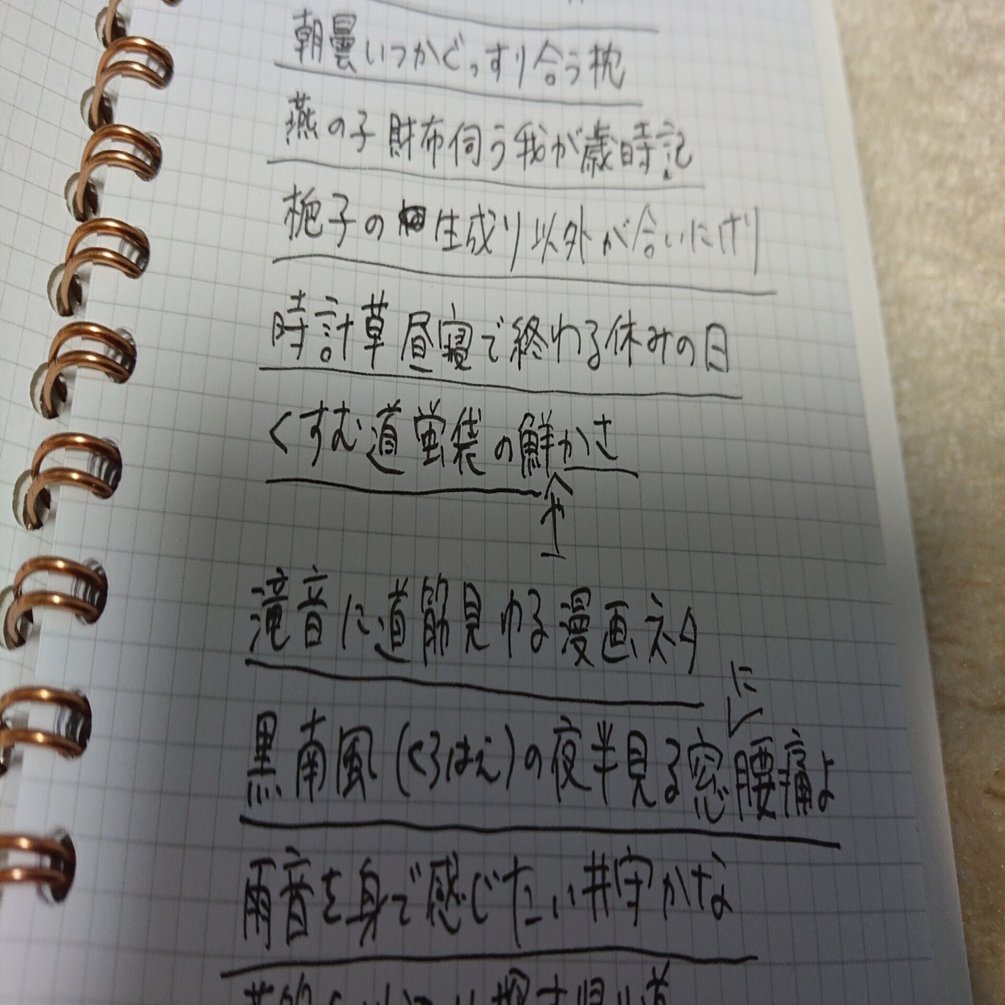 朝曇いつかぐっすり合う枕
燕の子財布伺う我が歳時記
梔子の生成り以外が合いにけり
時計草昼寝で終わる休みの日
くすむ道蛍袋の鮮かさ
や
滝音に道筋見ゆる漫画ネタ
に
黒南風(くろはえ)の夜半見る窓腰痛よ
雨音を身で感じたい井守かな